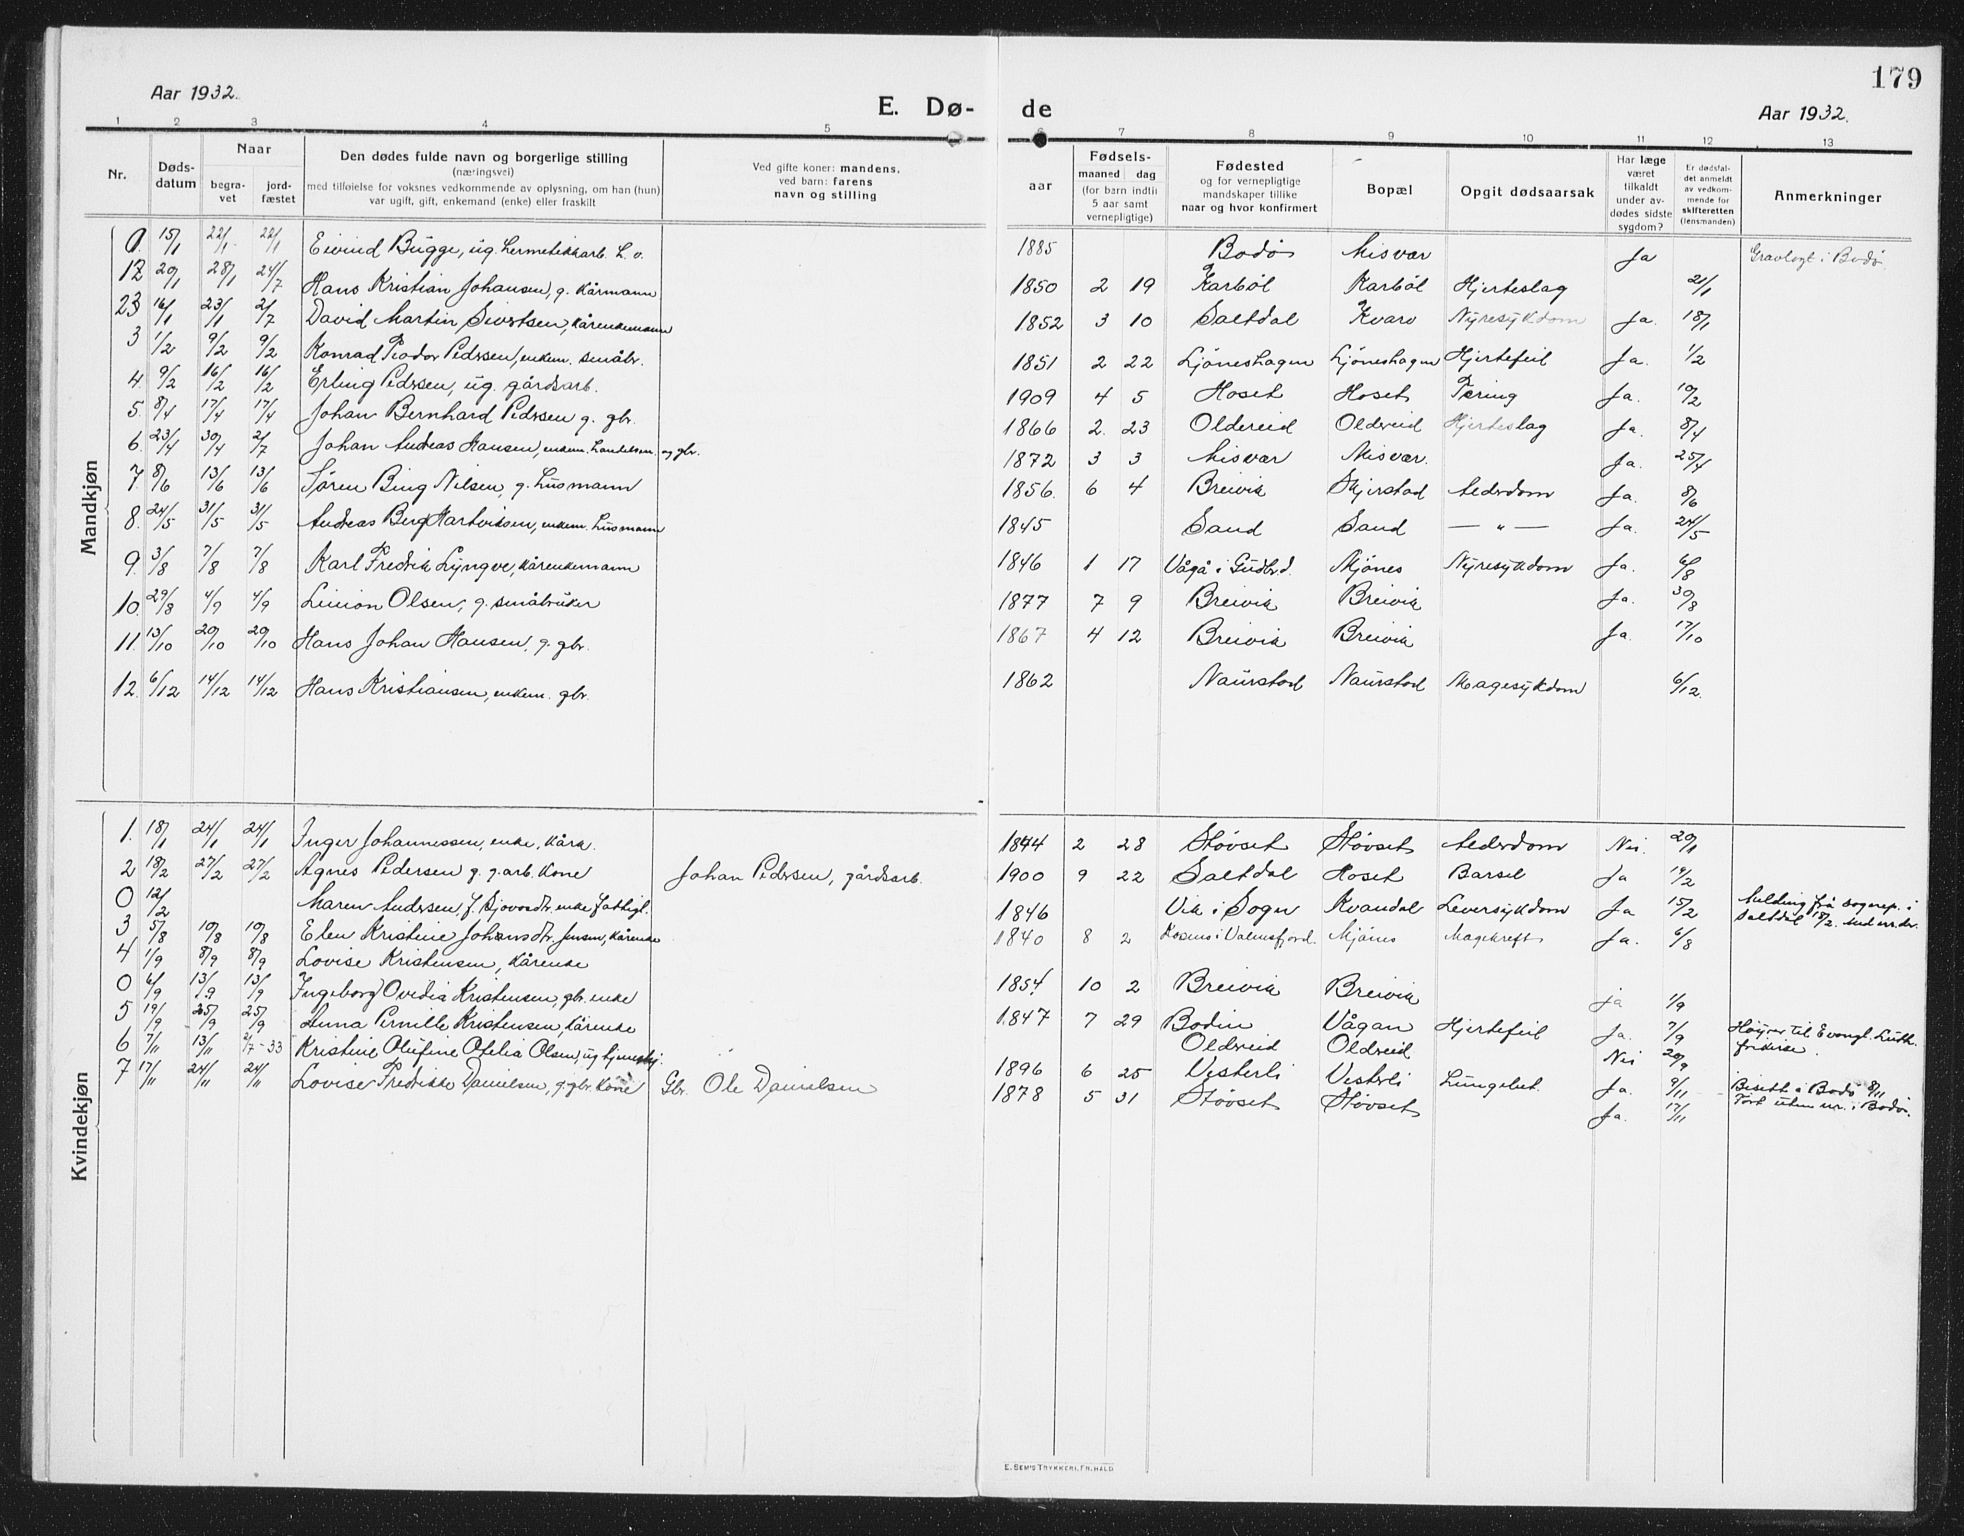 179
Aar 1932.
E. Dø- de
Aar 1932.
1 2 3 4 5 6 7 8 9 10 11 12 13
Nr.
Døds-
datum
Naar
begra-
vet
jord-
fæstet
Den dødes fulde navn og borgerlige stilling
(næringsvei)
med tilføielse for voksnes vedkommende av oplysning, om han (hun)
var ugift, gift, enkemand (enke) eller fraskilt
Ved gifte koner: mandens,
ved barn: farens
navn og stilling
Fødsels-
aar
maaned dag
(for barn indtil
5 aar samt
vernepligtige)
Fødested
og for vernepligtige
mandskaper tillike
naar og hvor konfirmert
Bopæl
Opgit dødsaarsak
Har læge
været
tilkaldt
under av-
dødes sidste
sygdom?
Er dødsfal-
det anmeldt
av vedkom-
mende for
skifteretten
(lensmanden)
Anmerkninger
Mandkjøn
0. 15/1 22/1 22/1 Eivind Bugge, ug. hermetikkarb. L. v. 1885 Bodø Misvær Ja Gravlagt i Bodø
12 20/1 28/1 24/7 Hans Kristian Johansen, g. kårmann 1850 2 19 Karbøl Karbøl Hjerteslag 21/1
23 16/1 23/1 2/7 David Martin Sivertsen, kårenkemann 1852 3 10 Saltdal Kvarv Nyresykdom Ja. 18/1
3 1/2 9/2 9/2 Konrad Teodor Pedersen, enkem. småbr. 1851 2 22 Ljøneshagen Ljøneshagen Hjertefeil Ja. 1/2
4. 9/2 16/2 16/2 Erling Pedersen, ug. gårdsarb. 1909 4 5 Hoset Hoset Tæring Ja. 10/2
5. 8/4 17/4 17/4 Johan Bernhard Pedersen g. gbr. 1866 2. 23 Oldereid Oldereid Hjerteslag Ja. 8/4
6. 23/4 30/4 2/7 Johan Andreas Hansen, enkem. handelsm. og gbr. 1872 3 3 Misvær Misvær. Ja. 25/4
7. 8/6 13/6 13/6 Søren Bing Nilsen, g. husmann 1856. 6 4 Breivik Skjerstad Alderdom Ja. 8/6
8. 24/5 31/5 31/5 Andreas Berg Hartviksen, enkem. husmann 1845 Sand Sand — " — Ja. 24/5
9. 3/8 7/8 7/8 Karl Fredrik Lyngve, kårenkemann 1846 1 17 Vågå i Gudbr.d. Mjønes Nyresykdom Ja. 6/8
10. 29/8 4/9 4/9 Simon Olsen, g. småbruker 1877 7 9 Breivik Breivik Ja. 30/8
11. 13/10 20/10 20/10 Hans Johan Hansen, g. gbr. 1867 4 12 Breivik Breivik Ja. 17/10
12. 6/12 14/12 14/12 Hans Kristiansen, enkem. gbr. 1862 Naurstad Naurstad Magesykdom 6/12.
Kvindekjøn
1. 18/1 24/1 24/1 Inger Johannessen, enke, kårk. 1844 2 28 Støvset Støvset Alderdom Nei. 20/1
2 18/2 27/2 27/2 Agnes Pedersen g. g.arb. kone Johan Pedersen, gårdsarb. 1900 9 22 Saltdal Hoset Barsel Ja 19/2
0 12/2 Maren Andersen, f. enke fattigl. 1846 Vik i Sogn Kvandal Leversykdom Ja 15/2 Melding frå sognep. i
Saltdal 18/2.
3 5/8 10/8 10/8 Elen Kristine Johansdtr. Jensen, kårenke 1840 8 2 Kosmo i Valnesfjord. Mjønes Magekreft Ja. 6/8
4 1/9 8/9 8/9 Lovise Kristensen, kårenke 1854 10 2 Breivik Breivik ja 1/9
0 6/9 13/9 13/9 Ingeborg Ovidia Kristensen, gbr. enke 1847 7 29 Bodin Vågan Hjertefeil Ja. 7/9 Høyrer til Evangl. Luth.
frikirke.
5 19/9 25/9 25/9 Anna Pernille Kristensen, kårenke Oldereid Oldereid. Nei 20/9
6 7/11 13/11 2/7-33 Kristine Olufine Ofelia Olsen, ug tjenestej. 1896 6 25 Vesterli Vesterli Lungebet. Ja. 9/11 Bisett i Bodø 8/11
Ført uten nr. i Bodø.
7 17/11 24/11 24/11 Lovise Fredrikke Danielsen, g. gbr. kone Gbr. Ole Danielsen 1878 5 31 Støvset Støvset Ja. 17/11
E. SEM'S TRYKKERI, FR.HALD